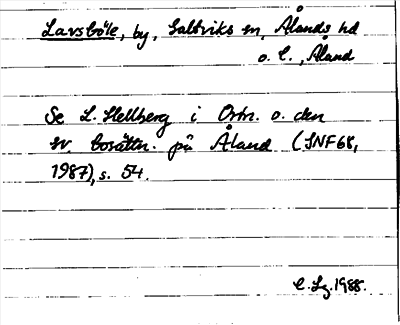 Lavsböle, by, Saltviks sn, Ålands hd
o. l., Åland
Se L. Hellberg i Ortn. o. den
sv. bosättn. på Åland (SNF 68,
1987), s. 54.
1988.